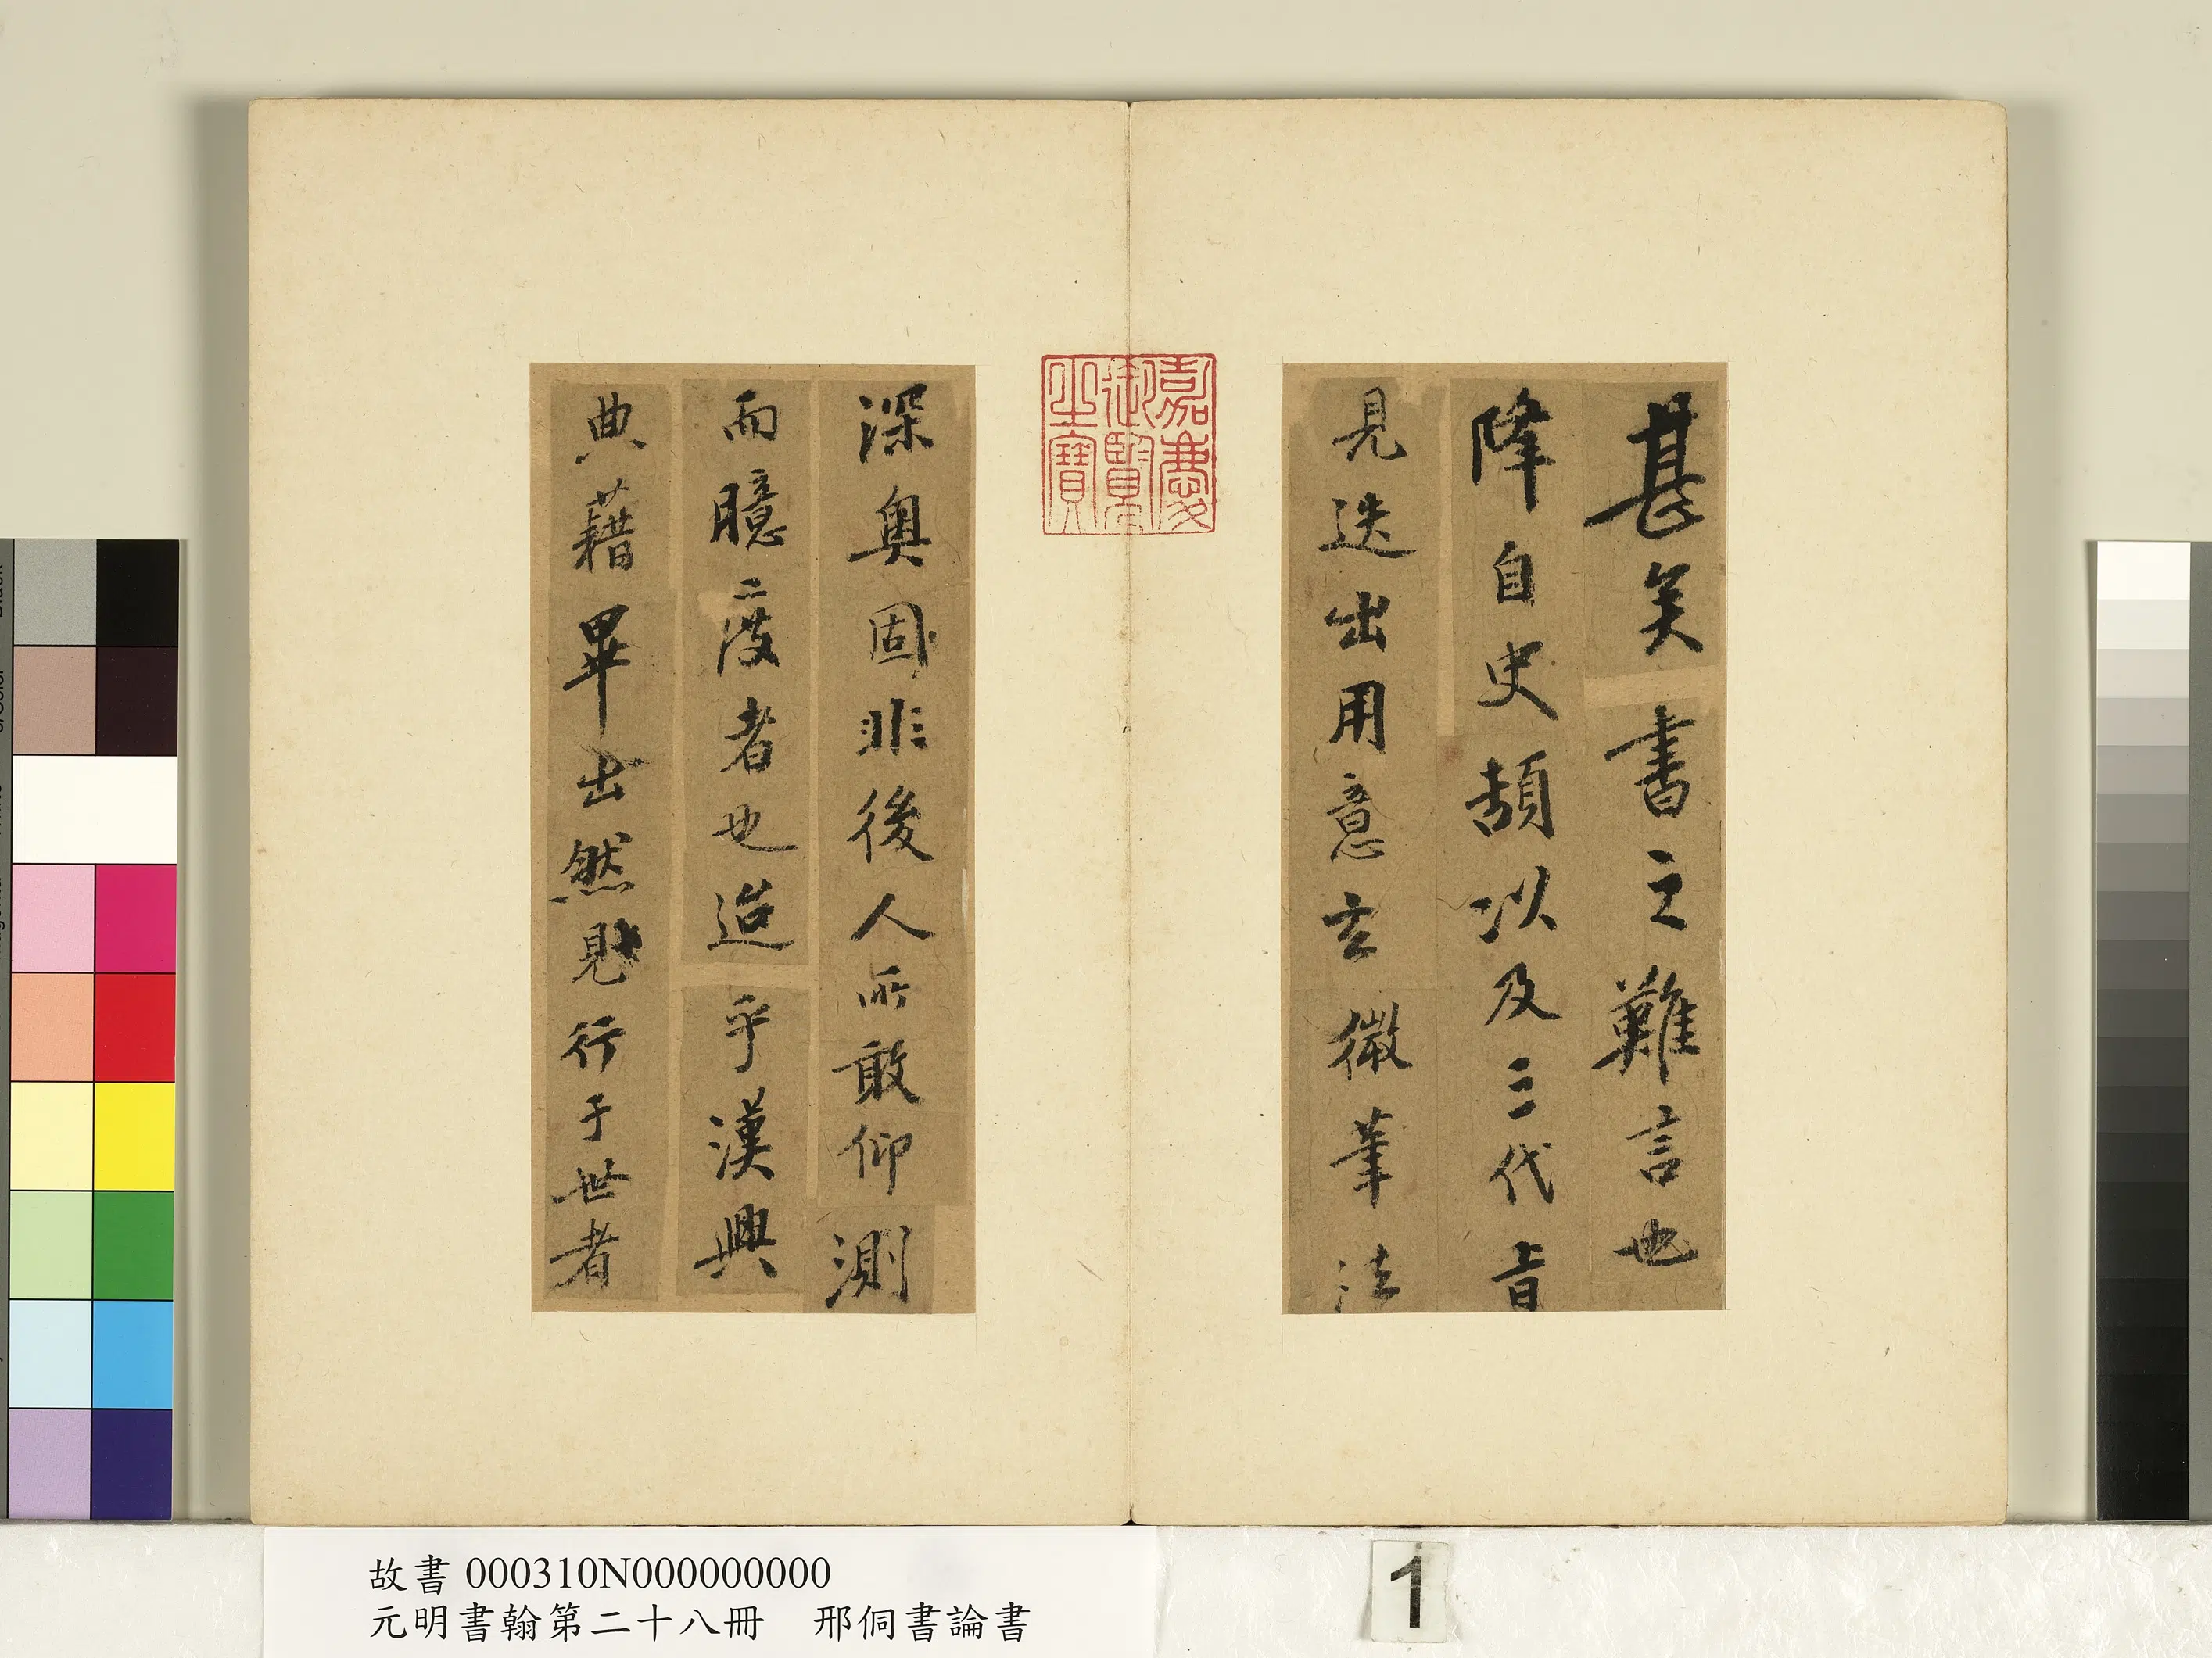 甚矣書之難言也
降自史頡以及三代旨
見迭出用意玄微筆法
嘉慶
御覽
之寶
深奧固非後人所敢仰測
而臆度者也迨乎漢興
典藉畢出然見行于世者
故書 000310N000000000
元明書翰第二十八冊 邢侗書論書
1